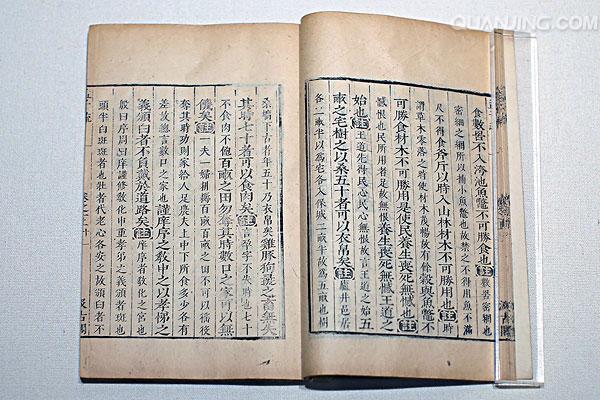 QUANJING.COM
食數罟不入洿池魚鼈不可勝食也註數罟密網也
密細之網所以捕小魚鼈也故禁之不得用魚不滿
尺不得食斧斤以時入山林材木不可勝用也註時
謂草木零落之時使材木茂暢故有餘穀與魚鼈不
可勝食材木不可勝用是使民養生喪死無憾也註
憾恨也民所用者足故無恨養生喪死無憾王道之
始也註王道先得民心民心無恨故言王道之始五
畝之宅樹之以桑五十者可以衣帛矣註廬井邑居
各二畝半以爲宅各入保城二畝半故爲五畝也樹
桑墻下古者年五十乃衣帛矣雞豚狗彘之畜無失
其時七十者可以食肉矣註言孕字不失時也七十
不食肉不飽百畝之田勿奪其時數口之家可以無
饑矣註一夫一婦耕耨百畝百畝之田不可以徭役
奪其時功則家給人足農夫上中下所食多少各有
差故總言數口之家也謹庠序之教申之以孝悌之
義頒白者不負戴於道路矣註庠序者教化之宮也
殷曰序周曰庠謹修教化申重孝弟之義頒者班也
頭半白班班者也壯者代老心各安之故頒白者不
汲古閣